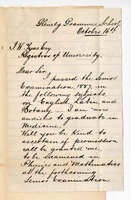 Glenelg Grammar School
October 16th
J. W. Tyas Esq
Registrar of University.
Dear Sir,
I passed the Senior
Examination 1887 in
the following subjects
viz English, Latin and
Botany. I am now
anxious to graduate in
Medicine.
Will you be kind to
ascertain if permission
will be granted me
to be examined in
Physics and Mathematics
at the forthcoming
Senior Examination.